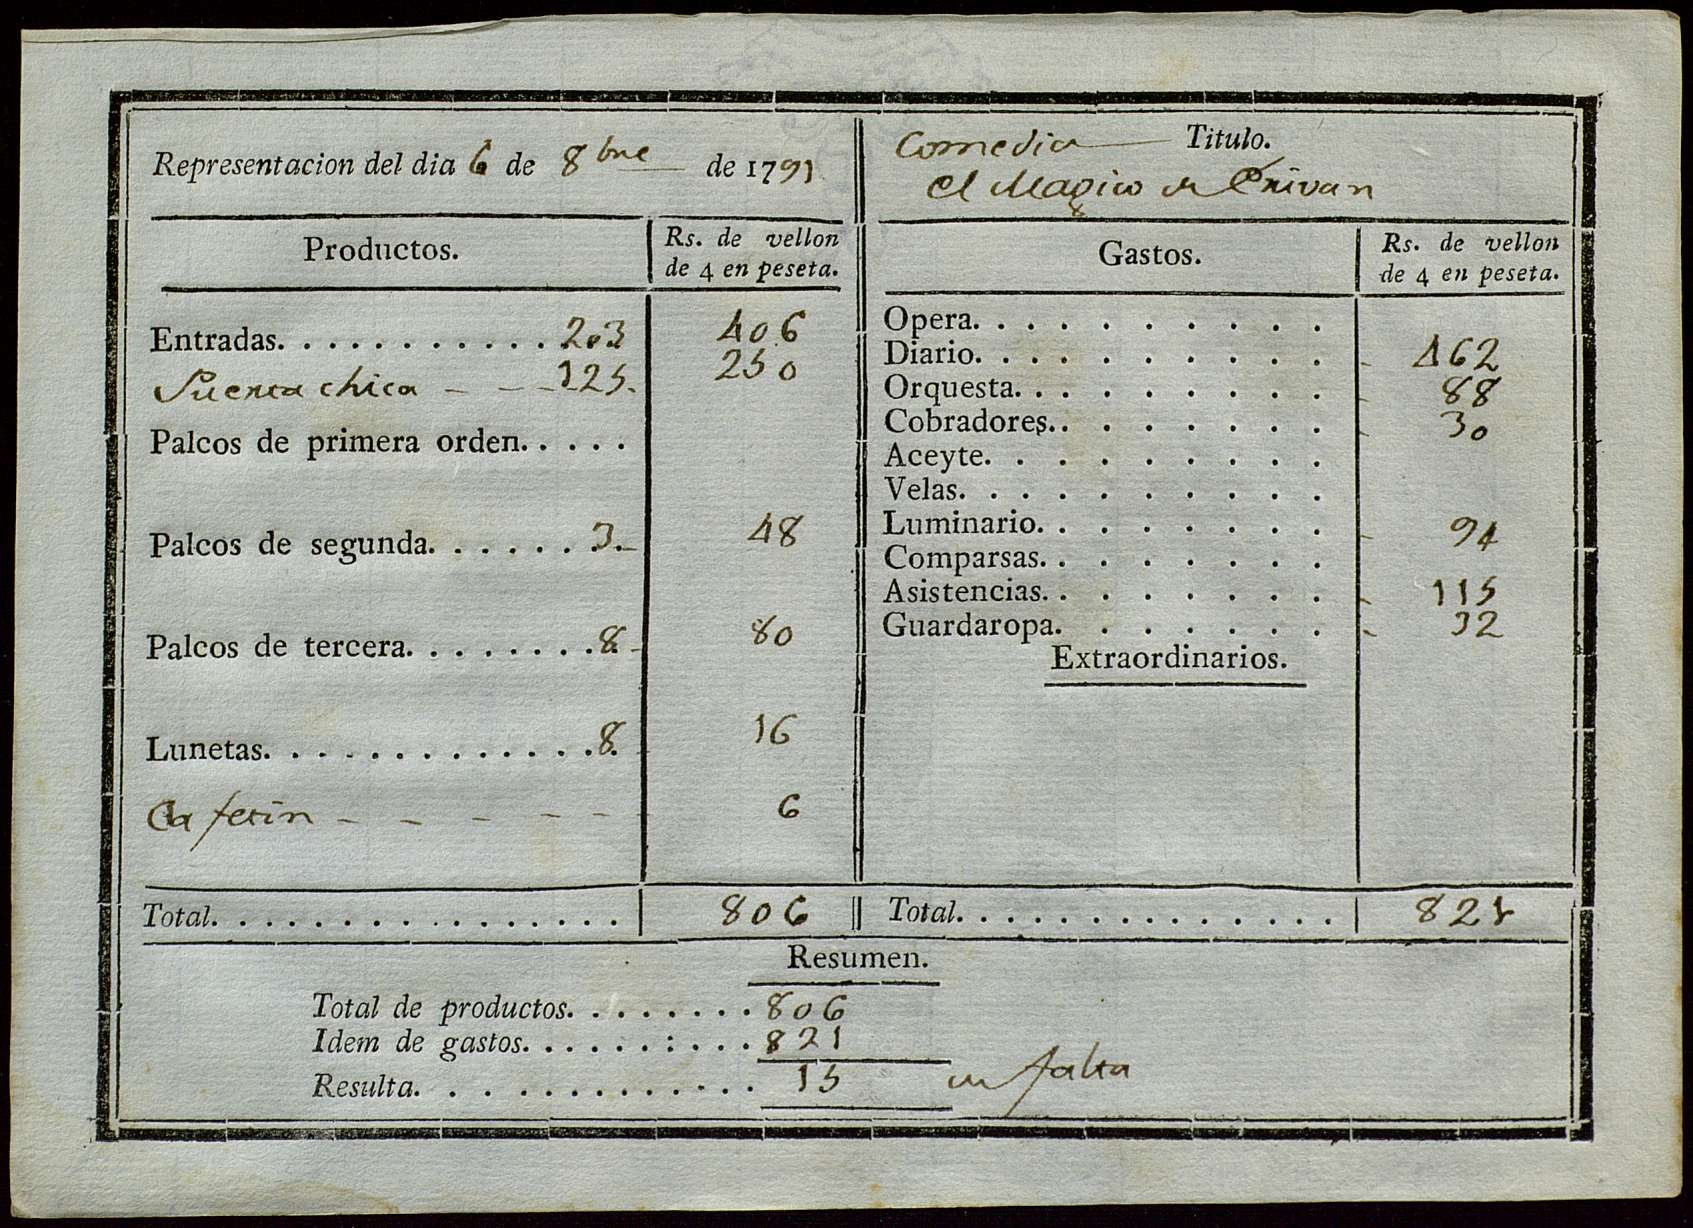 Representacion del dia 6 de 8bre de 1791
Comedia Titulo.
El Magico de Erivan
Productos. Rs. de vellon de 4 en peseta.
Entradas. . . . . . . . . . . 203 406
Puerta chica - - - 125. 250
Palcos de primera orden. . . . .
Palcos de segunda. . . . . . . 3. 48
Palcos de tercera. . . . . . . . 8. 80
Lunetas. . . . . . . . . . . . . 8. 16
Cafetin - - - - - - 6
Total. . . . . . . . . . . . . . . . 806
Gastos. Rs. de vellon de 4 en peseta.
Opera. . . . . . . . . .
Diario. . . . . . . . . . 462
Orquesta. . . . . . . . . 88
Cobradores. . . . . . . . 30
Aceyte. . . . . . . . .
Velas. . . . . . . . . .
Luminario. . . . . . . . 94
Comparsas. . . . . . . .
Asistencias. . . . . . . . 115
Guardaropa. . . . . . . 32
Extraordinarios.
Total. . . . . . . . . . . . . . 821
Resumen.
Total de productos. . . . . . . . 806
Idem de gastos. . . . . . : . . . 821
Resulta. . . . . . . . . . . . 15 en falta